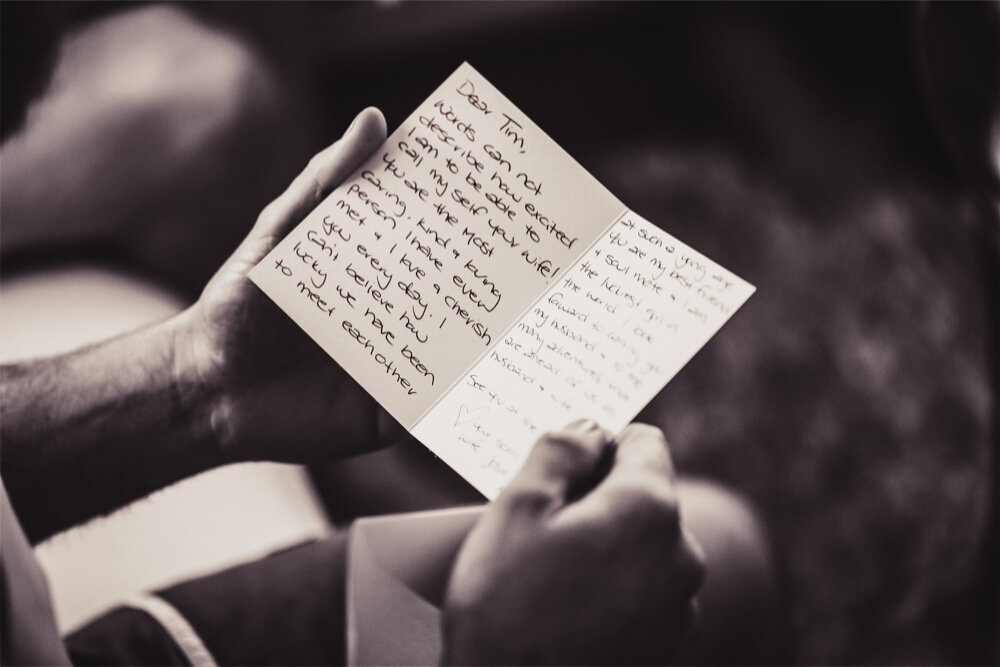 Dear Tim,
words can not
describe how excited
I am to be able to
call my self your wife!
You are the most
caring, kind & loving
person I have ever
met & I love & cherish
you every day. I
can't believe how
lucky we have been
to meet eachother
at such a young age
You are my best friend
& soul mate & I am
the luckiest girl in
the world. I look
forward to calling you
my husband & to the
many adventures
are ahead of us as
husband & wife
See you at the
wife